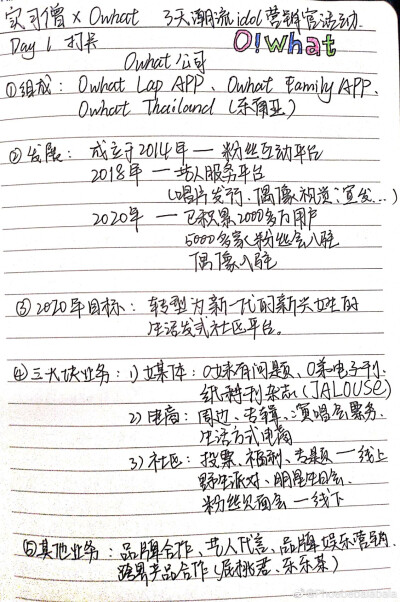 实习僧 × Owhat 3天潮流idol营销官活动.
Day 1 打卡 O!what
Owhat公司
①组成: Owhat Lap APP、Owhat Family APP、
Owhat Thailand (东南亚)
②发展: 成立于2014年 — 粉丝互动平台
2018年 — 艺人服务平台
(唱片发行、偶像视觉、宣发...)
2020年 — 已积累2000多万用户
5000多家粉丝会入驻
偶像入驻
③2020年目标: 转型为新一代的新兴女性的
生活方式社区平台。
④三大块业务: 1) 媒体: O妹有问题、O柒电子刊
纸质刊杂志 (JALOUSE)
2) 电商: 周边、专辑、演唱会票务.
生活方式电商
3) 社区: 投票、福利、专题 — 线上
野生派对、明星生日会.
粉丝见面会 — 线下
⑤其他业务: 品牌合作、艺人代言、品牌娱乐营销.
跨界产品合作 (屈挑君、乐乐茶)